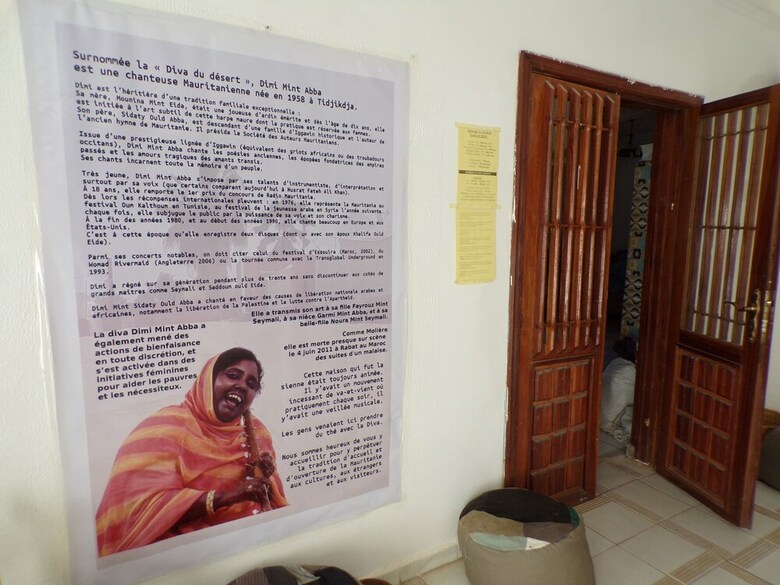 Surnommée la « Diva du désert », Dimi Mint Abba
est une chanteuse Mauritanienne née en 1958 à Tidjikdja.
Dimi est l'héritière d'une tradition familiale exceptionnelle :
Sa mère, Mounina Mint Eida, était une joueuse d'ardin émérite et dès l'âge de dix ans, elle
est initiée à l'art subtil de cette harpe maure dont la pratique est réservée aux femmes.
Son père, Sidaty Ould Abba, est descendant d'une famille d'Iggawin historique et l'auteur de
l'ancien hymne de Mauritanie. Il présida la Société des Auteurs Mauritaniens.
Issue d'une prestigieuse lignée d'Iggawin (équivalent des griots africains ou des troubadours
occitans), Dimi Mint Abba chante les poésies anciennes, les épopées fondatrices des empires
passés et les amours tragiques des amants transis.
Ses chants incarnent toute la mémoire d'un peuple.
Très jeune, Dimi Mint Abba s'impose par ses talents d'instrumentiste, d'interprétation et
surtout par sa voix (que certains comparent aujourd'hui à Nusrat Fateh Ali Khan).
À 18 ans, elle remporte le 1er prix du concours de Radio Mauritanie.
Dès lors les récompenses internationales pleuvent : en 1976, elle représente la Mauritanie au
festival Oum Kalthoum en Tunisie, au festival de la jeunesse arabe en Syrie l'année suivante,
chaque fois, elle subjugue le public par la puissance de sa voix et son charisme.
À la fin des années 1980, et au début des années 1990, elle chante beaucoup en Europe et aux
États-Unis.
C'est à cette époque qu'elle enregistre deux disques (dont un avec son époux Khalifa Ould
Eide).
Parmi ses concerts notables, on doit citer celui du festival d'Essouira (Maroc, 2002), du
Womad Rivermaid (Angleterre 2006) ou la tournée commune avec le Transglobal Underground en
1993.
Dimi a régné sur sa génération pendant plus de trente ans sans discontinuer aux cotés de
grands maîtres comme Seymali et Saddoum ould Eide.
Dimi Mint Sidaty Ould Abba a chanté en faveur des causes de libération nationale arabes et
africaines, notamment la libération de la Palestine et la lutte contre l'Apartheid.
Elle a transmis son art à sa fille Fayrouz Mint
Seymali, à sa nièce Garmi Mint Abba, et à sa
belle-fille Noura Mint Seymali.
La diva Dimi Mint Abba a
également mené des
actions de bienfaisance
en toute discrétion, et
s'est activée dans des
initiatives féminines
pour aider les pauvres
et les nécessiteux.
Comme Molière
elle est morte presque sur scène
le 4 juin 2011 à Rabat au Maroc
des suites d'un malaise.
Cette maison qui fut la
sienne était toujours animée.
Il y'avait un mouvement
incessant de va-et-vient où
pratiquement chaque soir, il
y'avait une veillée musicale.
Les gens venaient ici prendre
du thé avec la Diva.
Nous sommes heureux de vous y
accueillir pour y perpétuer
la tradition d'accueil et
d'ouverture de la Mauritanie
aux cultures, aux étrangers
et aux visiteurs.